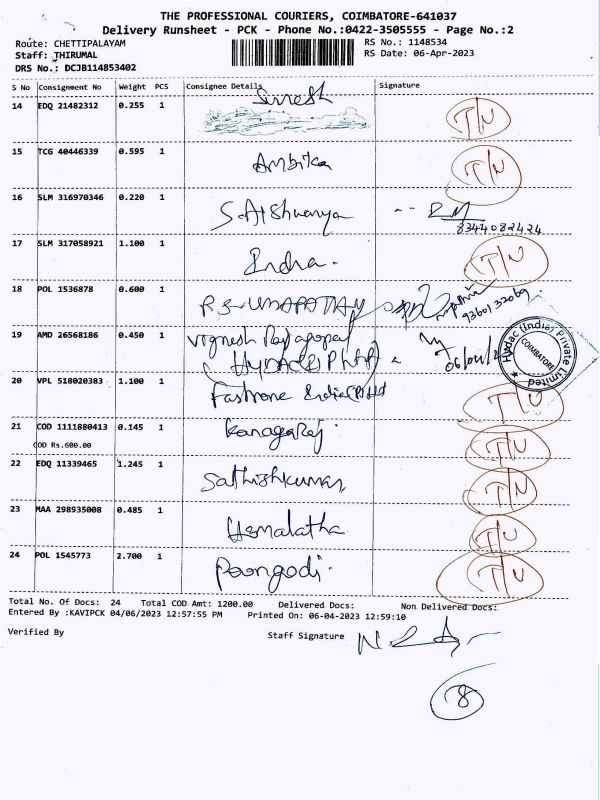 THE PROFESSIONAL COURIERS, COIMBATORE-641037
Delivery Runsheet - PCK - Phone No.:0422-3505555 - Page No.:2
Route: CHETTIPALAYAM RS No.: 1148534
Staff: THIRUMAL RS Date: 06-Apr-2023
DRS No.: DCJB114853402
S No Consignment No Weight PCS Consignee Details Signature
14 EDQ 21482312 0.255 1 Suresh T/N
15 TCG 40446339 0.595 1 Ambika T/N
16 SLM 316970346 0.220 1 S. Aishwarya
8344082424
17 SLM 317058921 1.100 1 Indra. T/N
18 POL 1536878 0.600 1
19 AMD 26568186 0.450 1 Vignesh Rajagopal
Hydac (Indie) Private Limited
COIMBATORE
20 VPL 518020383 1.100 1 T/N
21 COD 1111880413 0.145 1 Kanagaraj T/N
COD Rs.600.00
22 EDQ 11339465 1.245 1 Sathishkumar T/N
23 MAA 298935008 0.485 1 Hemalatha T/N
24 POL 1545773 2.700 1 Poongodi. T/N
Total No. Of Docs: 24 Total COD Amt: 1200.00 Delivered Docs: Non Delivered Docs:
Entered By :KAVIPCK 04/06/2023 12:57:55 PM Printed On: 06-04-2023 12:59:10
Verified By Staff Signature
8